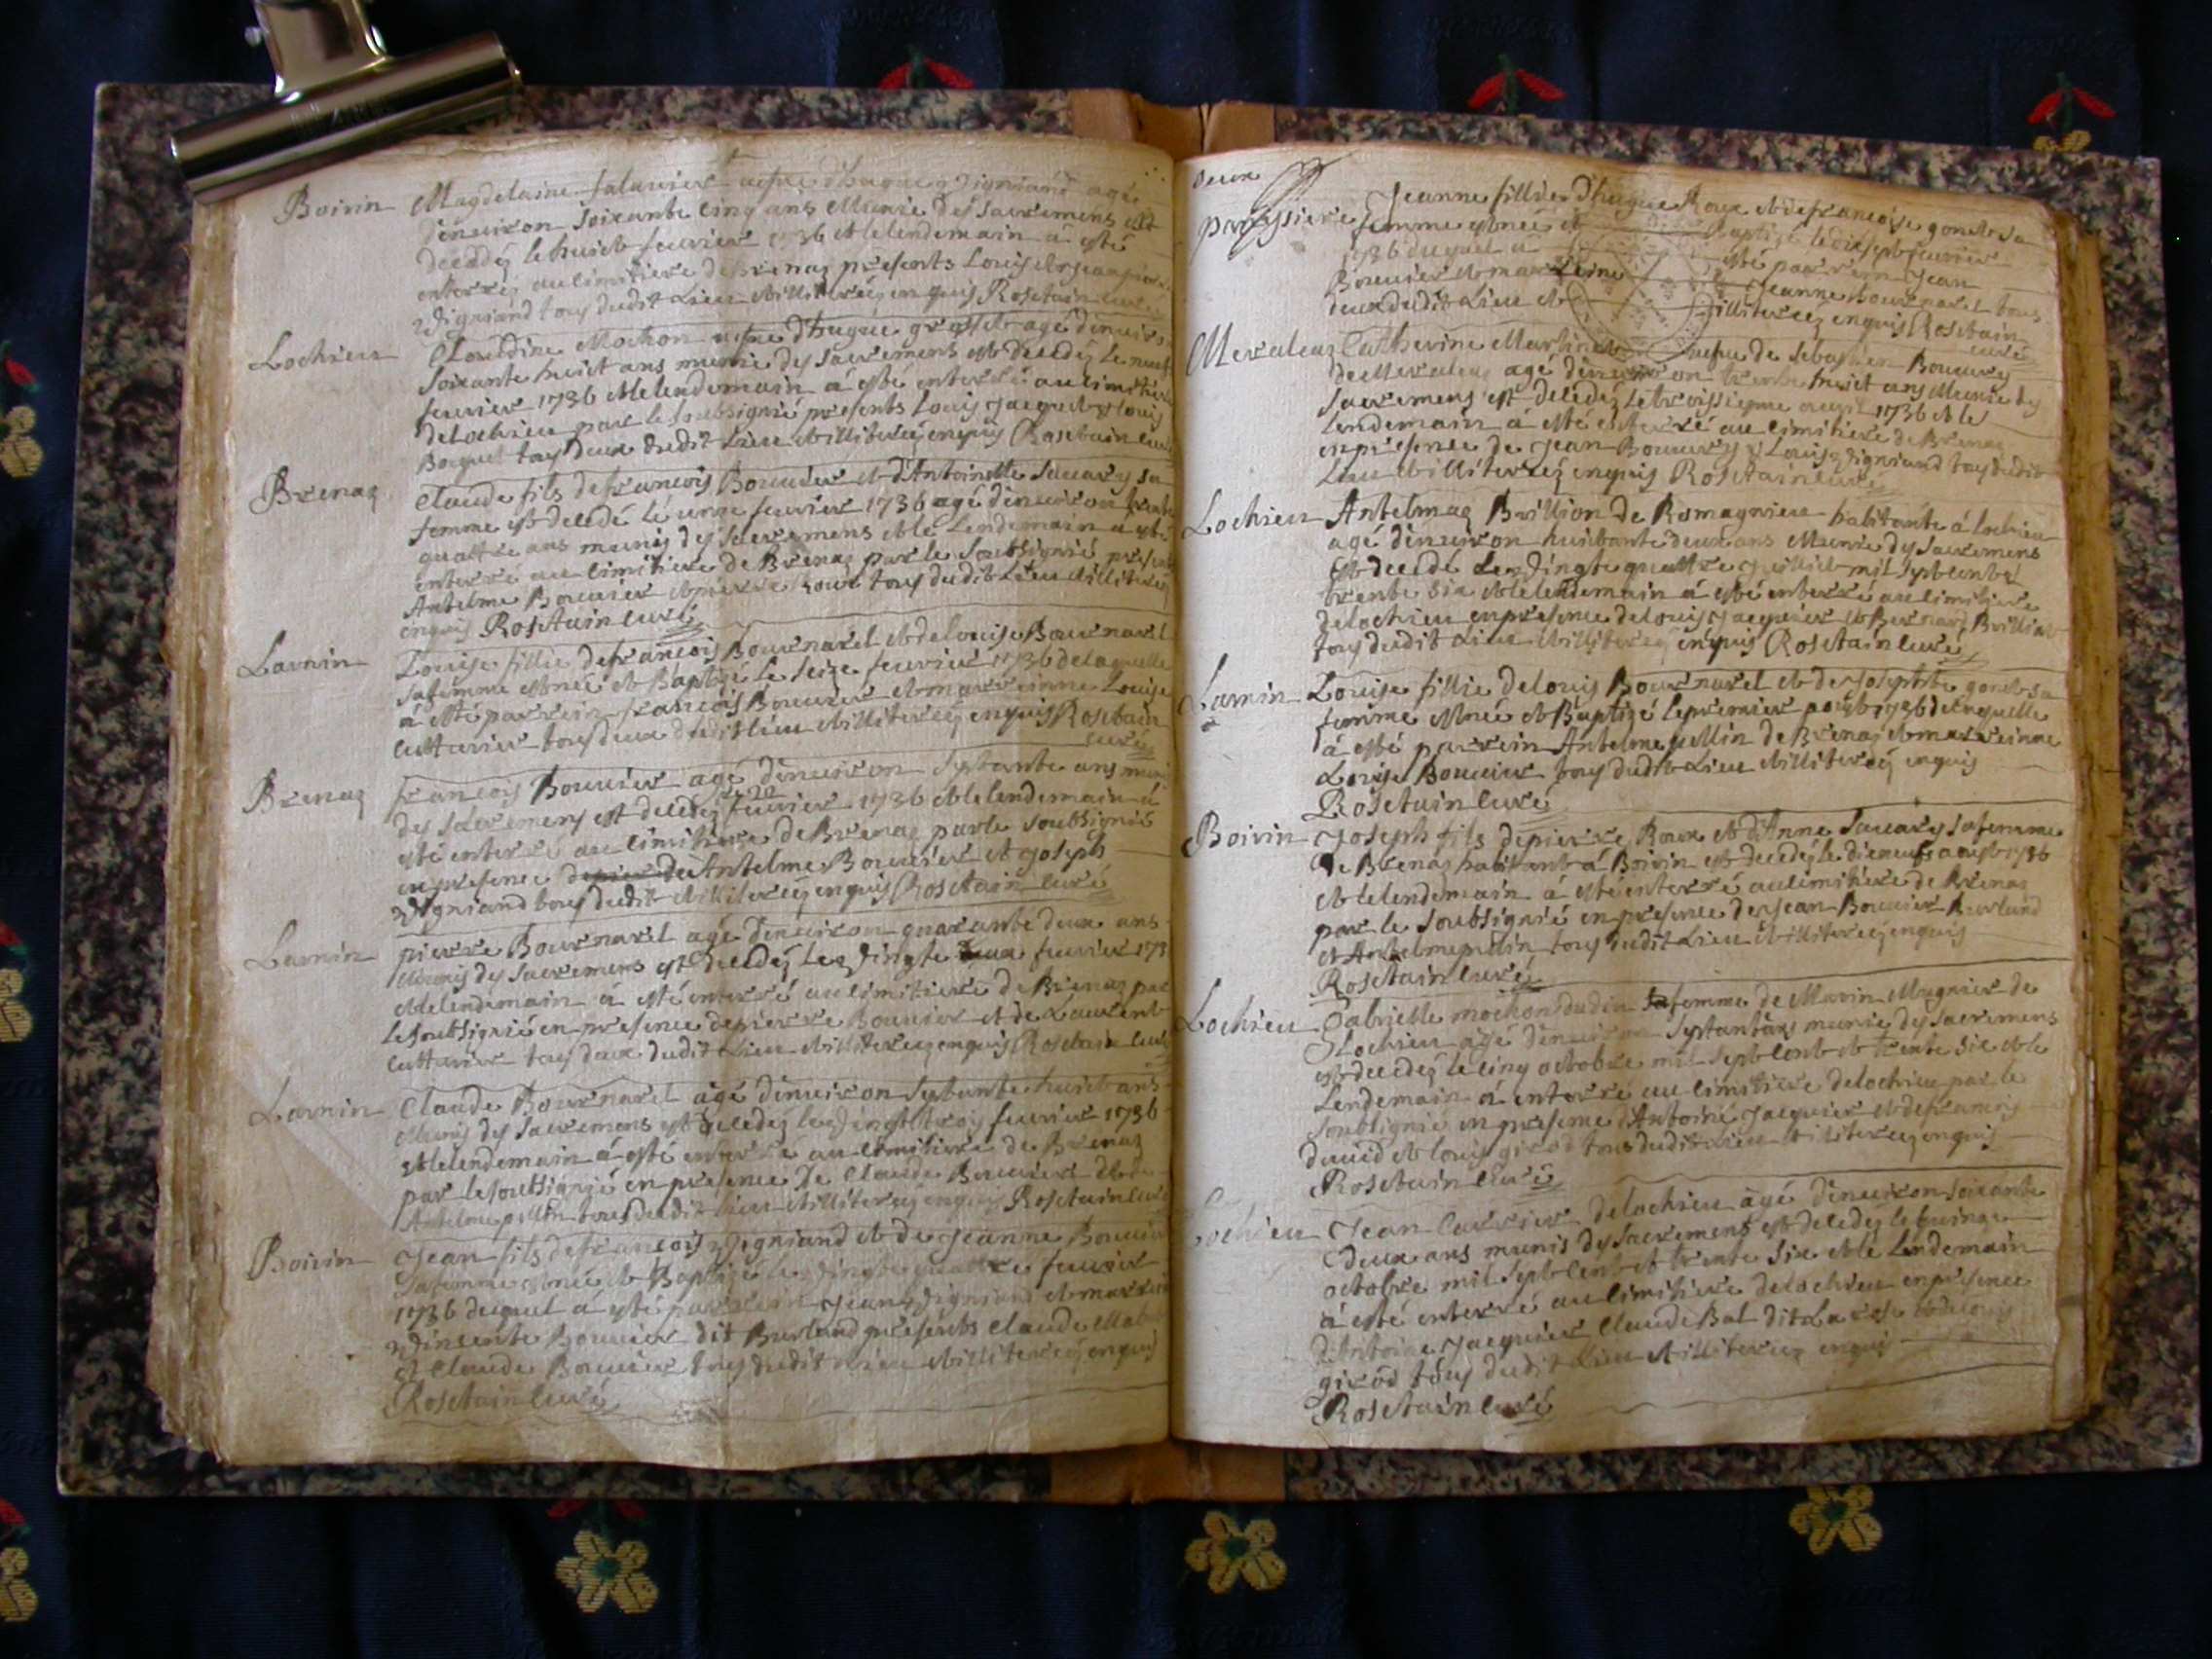 Boivin
Magdelaine Salavier vefue d'hugue Vigniand agé
d'enuiron soixante cinq ans Munie des sacremens est
decedéz le huict feurier 1736 et le lendemain à esté
enterréz au cimitiere de Brenaz presents Louis et
Vigniand tous dudit Lieu et illiteréz enquis Rosetain curé
Lochieu
Claudine Mochon vefue d'hugue grosset agé d'enuiron
soixante huict ans munie des sacremens est decedéz le neuf
feurier 1736 et le lendemain à esté enterré au cimitiere
de Lochieu par le soubsignié presents Louis Jacquet et Louis
Boquet tous deux dudit Lieu et illiteréz enquis Rosetain curé
Brenaz
Claude fils de francois Bouuier et d'Antoinette Sauary sa
femme est decedé le unze feurier 1736 agé d'enuiron trente
quattre ans munis des sacremens et le Lendemain a esté
enterré au cimitiere de Brenaz par le soubsignié presents
Antelme Bouuier et pierre Roux tous dudit Lieu et illiteréz
enquis Rosetain curé
Larnin
Louise fillie de francois Bournarel et de Louise Bournarel
sa femme est née et Baptizé le seize feurier 1736 de laquelle
à esté parrein francois Bouuier et marreinne Louise
cuttarier tous deux dudit lieu et illiteréz enquis Rosetain
curé
Brenaz
francois Bouuier agé d'enuiron septante ans munis
des sacremens est decedéz le 20 feurier 1736 et le lendemain à
esté enterré au cimitiere de Brenaz par le soubsignié
en presence de Antelme Bouuier et Joseph
Vigniand tous dudit et illiteréz enquis Rosetain curé
Larnin
pierre Bournarel agé d'enuiron quarante deux ans
Munis des sacremens est decedéz le Vingte deux feurier 173
et le lendemain à esté enterré au cimitiere de Brenaz par
le soubsignié en presence de pierre Bouuier et de Laurent
cuttarier tous deux dudit Lieu et illiteréz enquis Rosetain curé
Larnin
Claude Bournarel agé d'enuiron septante huict ans
Munis des sacremens est decedéz le Vingt trois feurier 1736
et le lendemain à esté enterré au cimitiere de Brenaz
par le soubsignié en presence de Claude Bouuier et de
Antelme pillin tous dudit Lieu et illiteréz enquis Rosetain curé
Boivin
Jean fils de francois Vigniand et de Jeanne Bouuier
sa femme est née et Baptizé le Vingte quattre feurier
1736 duquel à esté parrein Jean Vigniand et marrein
Vincente Bouuier dit Burland presents Claude
et Claude Bouuier tous dudit Lieu et illiteréz enquis
Rosetain curé
deux
parrissiere
Jeanne fillie d'hugue Roux et de francoise gonet sa
femme est née et Baptizé le dixsept feurier
1736 duquel a esté parrein Jean
Bouuier et marreine Jeanne Bournarel tous
deux dudit Lieu et illiteréz enquis Rosetain
curé
Meraleaz
Catherine Martinet vefue de Sebastien Bouuery
de Meraleaz agé d'enuiron trente huict ans Munie des
sacremens est decedéz le troisieme auril 1736 et le
lendemain à esté enterré au cimitiere de Brenaz
en presence de Jean Bouuery et Louis Vigniand tous dudit
Lieu et illiteréz enquis Rosetain curé
Lochieu
Antelmaz Brillion de Romagnieu habitante à lochieu
agé d'enuiron huictante deux ans Munie des sacremens
est decedé le Vingte quattre Juillet mil sept cents
trente six et le lendemain à esté enterré au cimitiere
de lochieu en presence de louis Jacquier et Bernard Brillion
tous dudit Lieu et illiteréz enquis Rosetain curé
Larnin
Louise fillie de louis Bournarel et de Josephte gonet sa
femme est née et Baptizé le premier aoust 1736 de laquelle
à esté parrein Antelme pillin de Brenaz et marreinne
Louise Bouuier tous dudit Lieu et illiteréz enquis
Rosetain curé
Boivin
Joseph fils de pierre Roux et d'Anne Sauary sa femme
de Brenaz habitant à Boivin est decedéz le dixneuf aoust 1736
et le lendemain à esté enterré au cimitiere de Brenaz
par le soubsignié en presence de Jean Bouuier Burland
et Antelme pillin tous dudit Lieu et illiteréz enquis
Rosetain curé
Lochieu
Gabrielle mochon dudin femme de Marin Mugnier de
Lochieu agé d'enuiron septant'ans munie des sacremens
est decedéz le cinq octobre mil sept cent et trente six et le
Lendemain à enterré au cimitiere de lochieu par le
soubsignié en presence d'Antoine Jacquier et de francois
dauid et louis girod tous dudit Lieu et illiteréz enquis
Rosetain curé
Lochieu
Jean Currier de lochieu agé d'enuiron soixante
deux ans munis des sacremens est decedéz le quinze
octobre mil sept cent et trente six et le Lendemain
à esté enterré au cimitiere de lochieu en presence
d'Antoine Jacquier Claude Bal dit La rose et de louis
girod tous dudit Lieu et illiteréz enquis
Rosetain curé